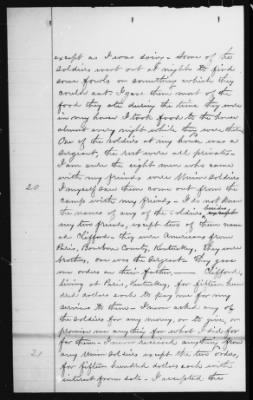 except as I was going - Some of the
soldiers went out at night to find
some fowls or something which they
could eat. I gave them most of the
food they ate during the time they were
in my house I took food to the house
almost every night while they were there
One of the soldiers at my house was a
sergeant, the rest were all privates -
I am sure the eight men who came
with my friends were Union Soldiers
20 I myself saw them come out from the
camp with my friends - I do not know
the name of any of the soldiers besides
my two friends, except two of them named
Clifford - they were Americans from
Paris, Bourbon County, Kentucky, they were
brothers, one was the Sergeant - they gave
me orders on their father, Clifford,
living at Paris, Kentucky, for fifteen hun
dred dollars each to pay me for my
service to them - I never asked any of
the soldiers for any money, or to give, or
promise me anything for what I did for
for them - I never received anything from
21 any Union Soldiers except the two orders,
for fifteen hundred dollars each with
interest from date - I accepted the